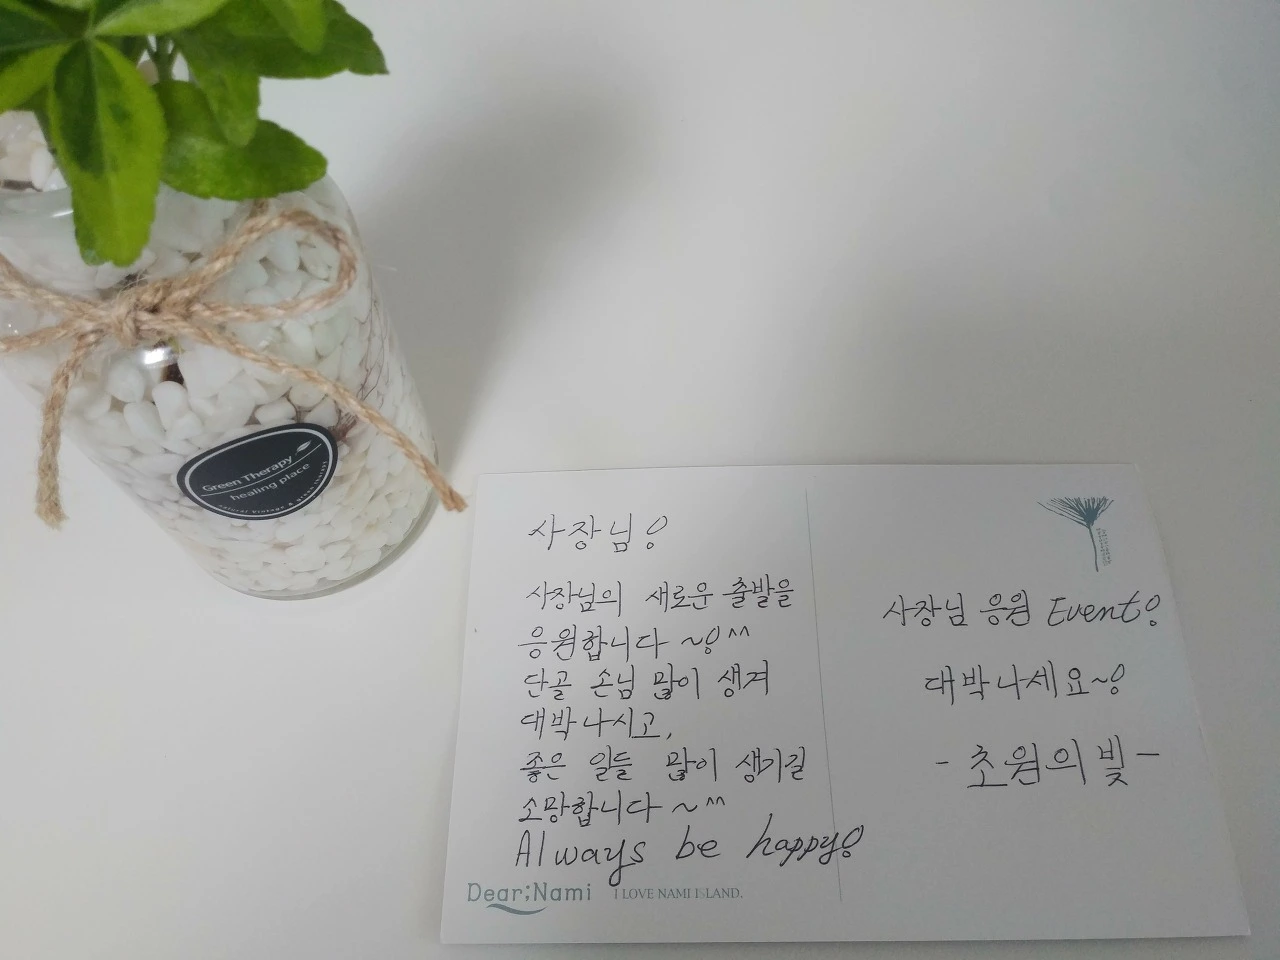 Green Therapy
healing place
natural vintage & green therapy
사장님!
사장님의 새로운 출발을
응원합니다 ~! ^^
단골 손님 많이 생겨
대박나시고,
좋은 일들 많이 생기길
소망합니다 ~ ^^
Always be happy!
Dear;Nami I LOVE NAMI ISLAND.
사장님 응원 Event!
대박나세요~!
- 초원의 빛 -